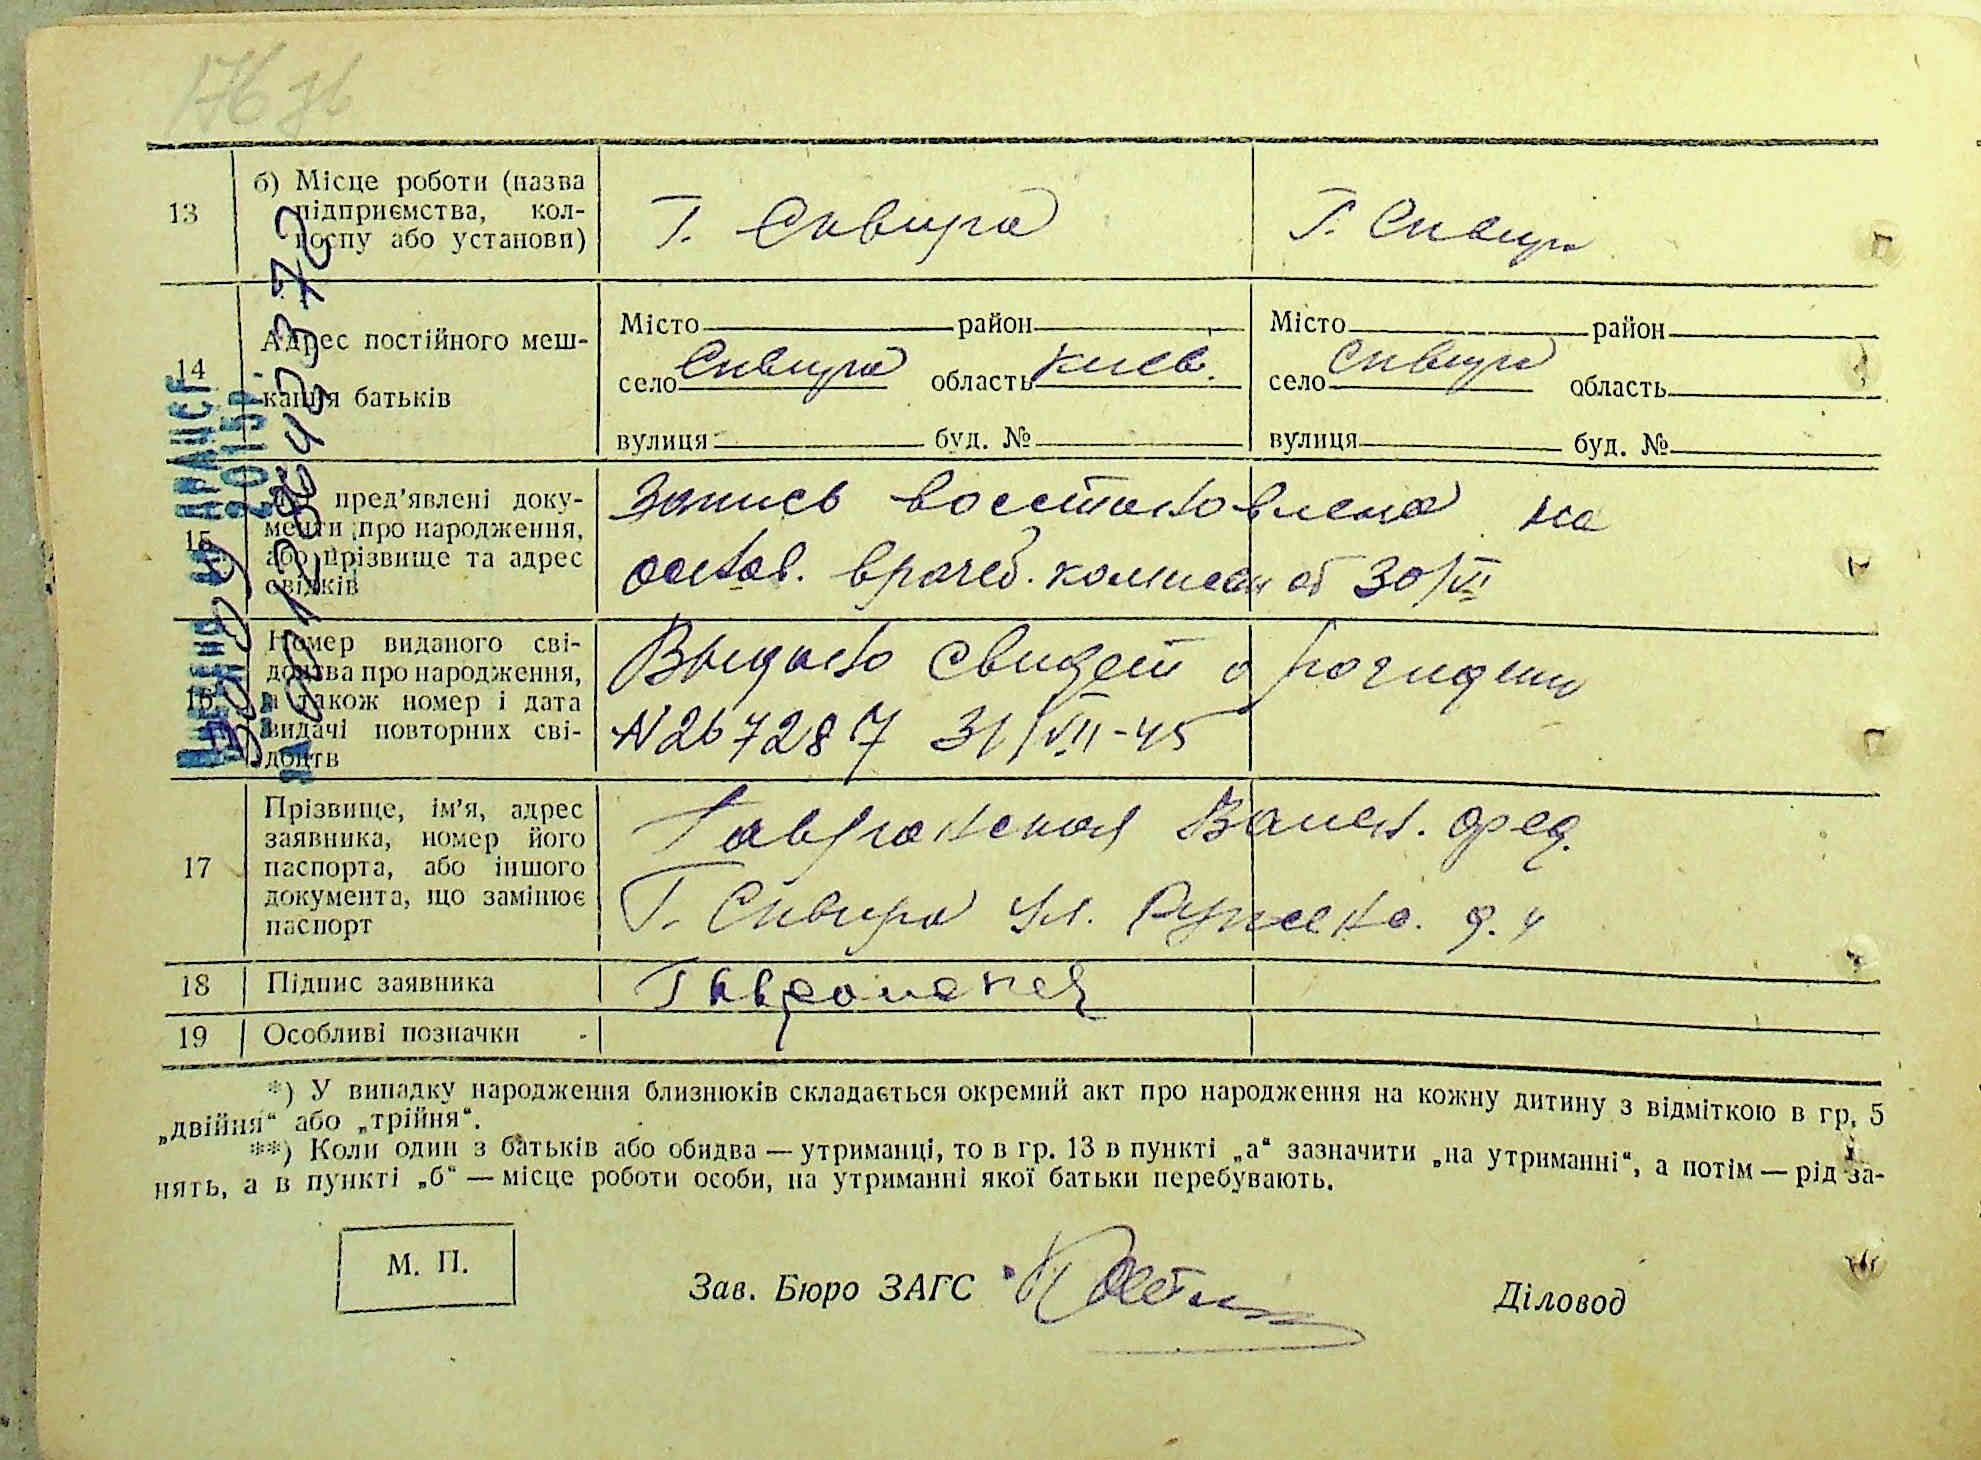 176 зв
13
б) Місце роботи (назва
підприємства, кол-
госпу або установи)
Г. Сквира
Г. Сквира
14
Адрес постійного меш-
кання батьків
Місто район
село Сквира область Киев.
вулиця буд. №
Місто район
село Сквира область
вулиця буд. №
15
пред’явлені доку-
менти про народження,
або прізвище та адрес
свідків
Запись восстановлена на
основ. врачеб. комиссии от 30/VII
16
Номер виданого сві-
доцтва про народження,
а також номер і дата
видачі повторних сві-
доцтв
Выдано свидет о рождении
N267287 31/VII-45
17
Прізвище, ім’я, адрес
заявника, номер його
паспорта, або іншого
документа, що замінює
паспорт
Г. Сквира ул. д. 4
18
Підпис заявника
19
Особливі позначки
*) У випадку народження близнюків складається окремий акт про народження на кожну дитину з відміткою в гр. 5
„двійня“ або „трійня“.
**) Коли один з батьків або обидва — утриманці, то в гр. 13 в пункті „а“ зазначити „на утриманні“, а потім — рід за-
нять, а в пункті „б“ — місце роботи особи, на утриманні якої батьки перебувають.
М. П.
Зав. Бюро ЗАГС
Діловод
ДРАЦСГ
2015р.